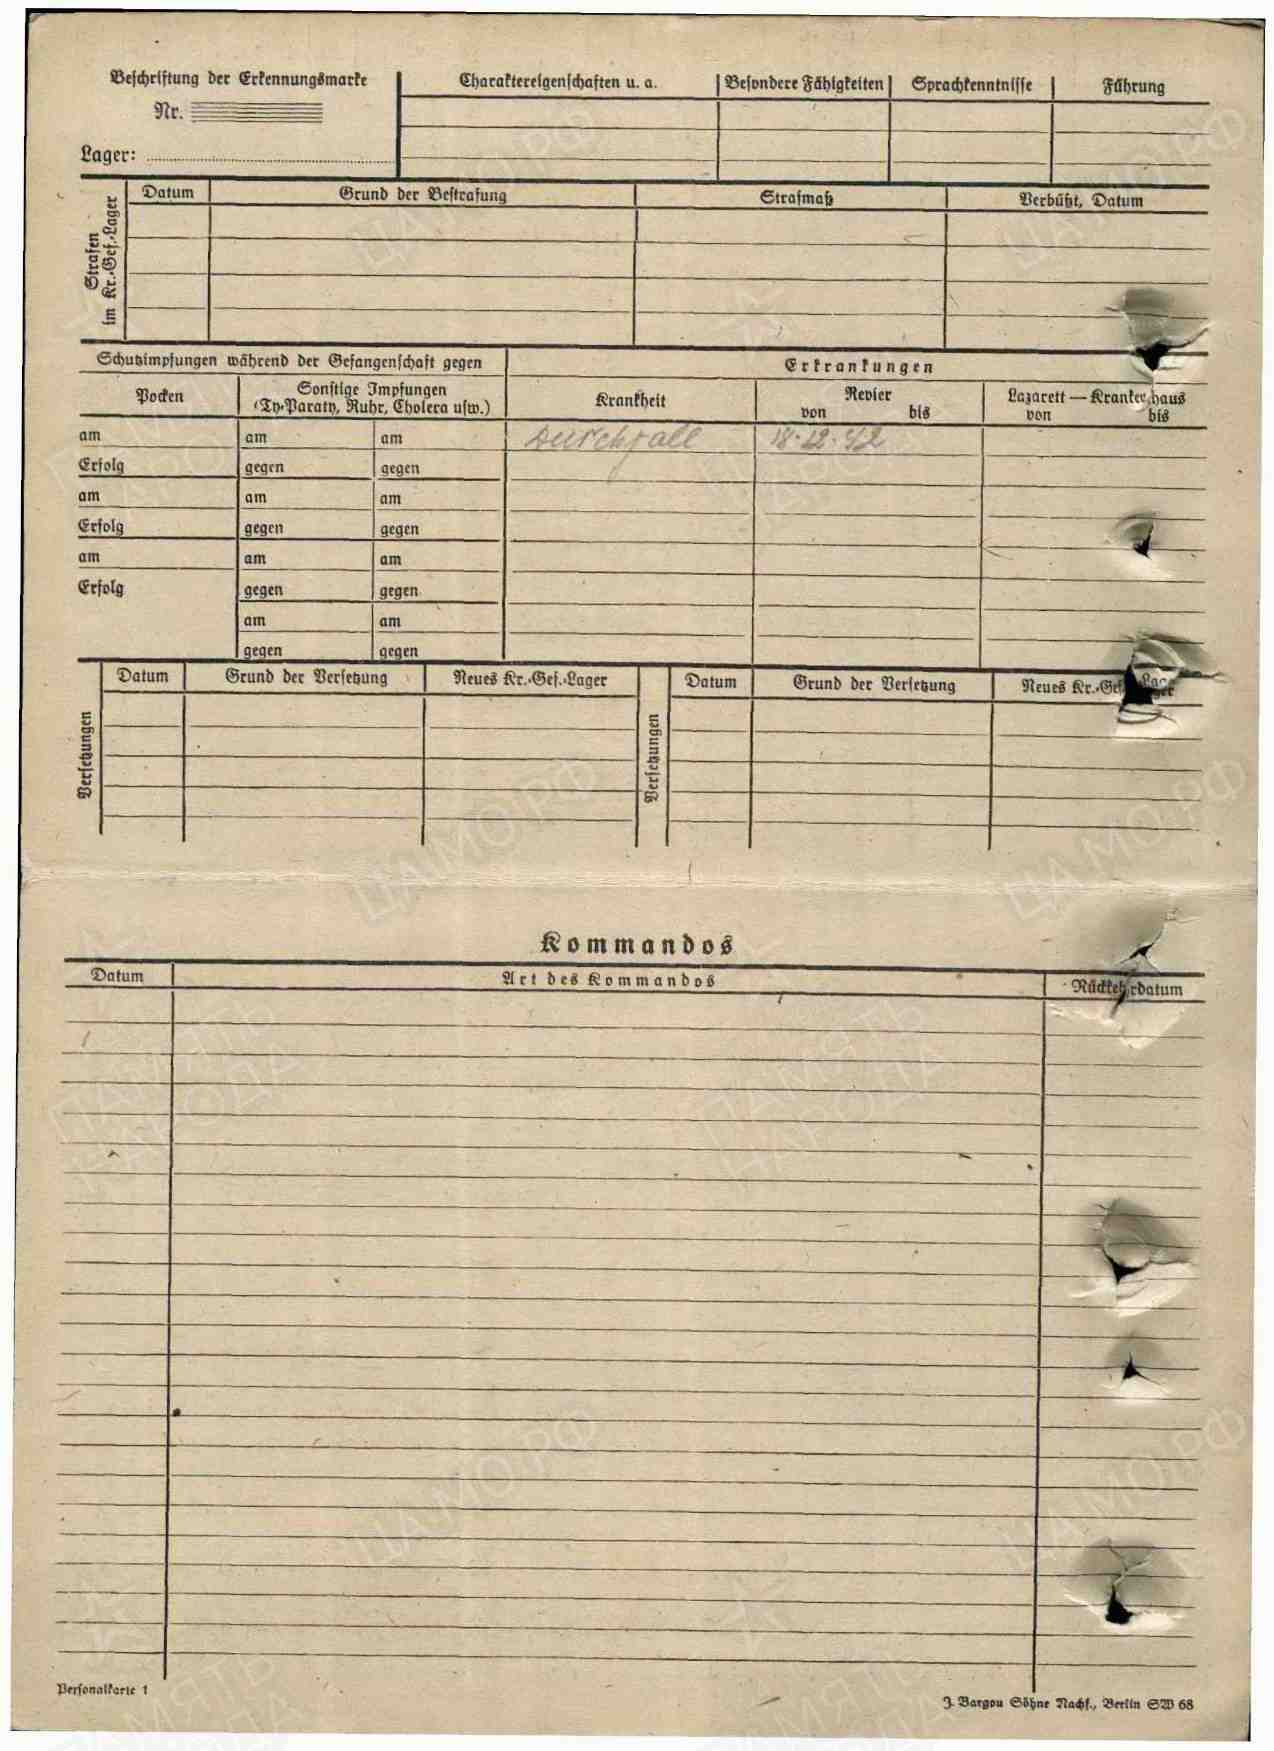 Beschriftung der Erkennungsmarke
Nr.
Lager:
Charaktereigenschaften u. a.
Besondere Fähigkeiten
Sprachkenntnisse
Führung
Strafen
im Kr.-Gef.-Lager
Datum
Grund der Bestrafung
Strafmaß
Verbüßt, Datum
Schutzimpfungen während der Gefangenschaft gegen
Erkrankungen
Pocken
Sonstige Impfungen
(Ty-Paraty, Ruhr, Cholera usw.)
Krankheit
Revier
von bis
Lazarett — Krankenhaus
von bis
am am am Durchfall 18.12.42
Erfolg gegen gegen
am am am
Erfolg gegen gegen
am am am
Erfolg gegen gegen
am am
gegen gegen
Versetzungen
Datum
Grund der Versetzung
Neues Kr.-Gef.-Lager
Versetzungen
Datum
Grund der Versetzung
Neues Kr.-Gef.-Lager
Kommandos
Datum
Art des Kommandos
Rückkehrdatum
Personalkarte 1
J. Bargou Söhne Nachf., Berlin SW 68
ЦАМО.РФ
ПАМЯТЬ
НАРОДА